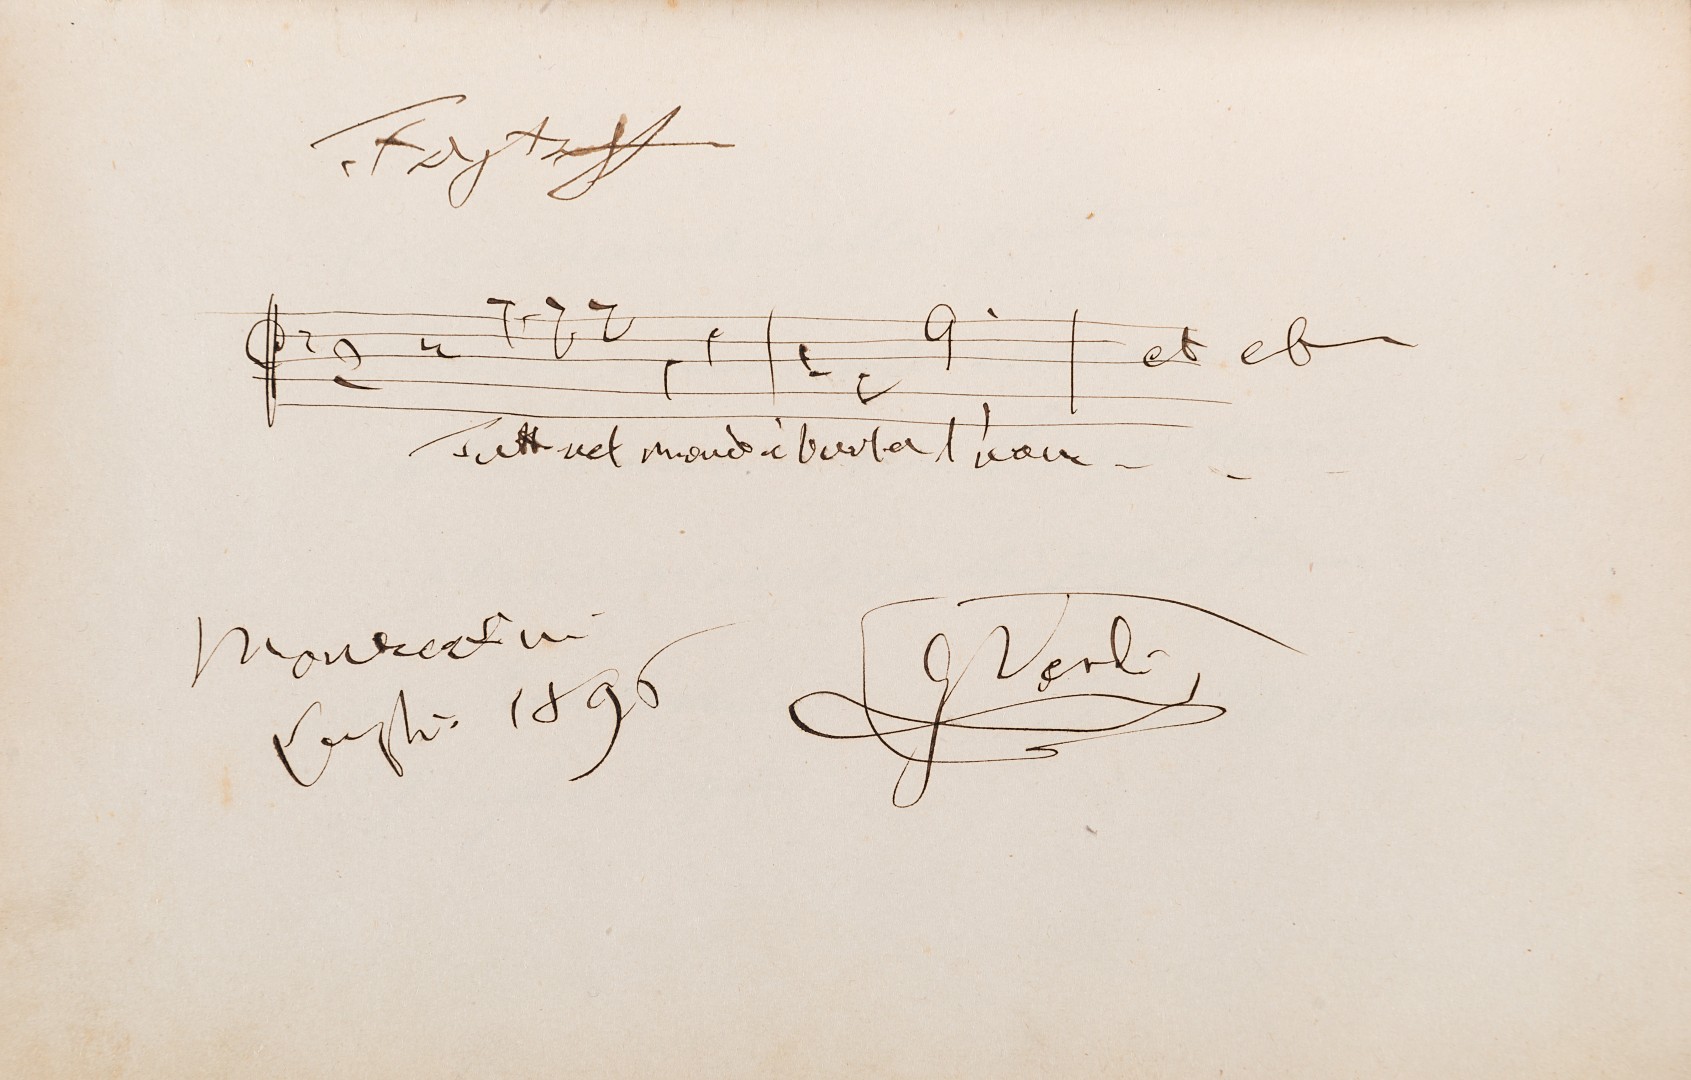 Falstaff
Tutt nel mondo è burla l'uom - - -
et eb
Montecatini
Luglio 1896
G Verdi